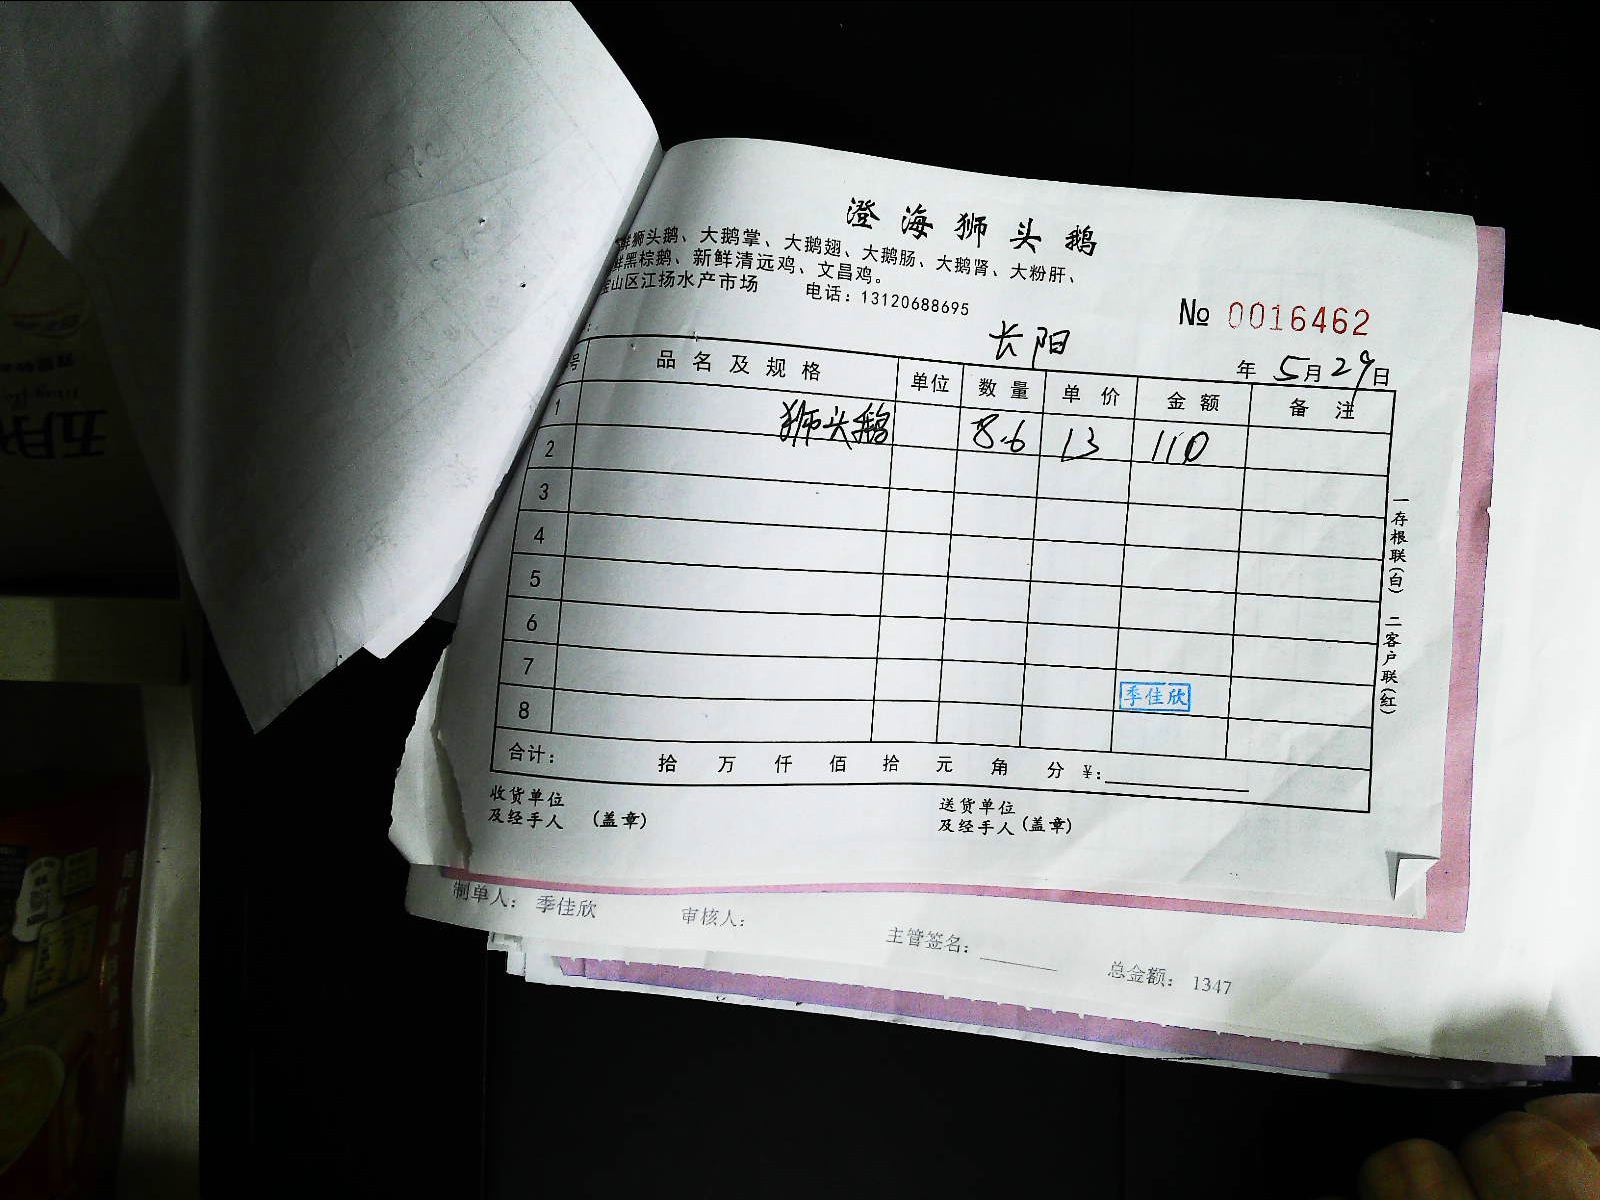 澄海狮头鹅
鲜狮头鹅、大鹅掌、大鹅翅、大鹅肠、大鹅肾、大粉肝、
鲜黑棕鹅、新鲜清远鸡、文昌鸡。
宝山区江扬水产市场 电话：13120688695
№ 0016462
长阳
年 5月29日
号 品名及规格 单位 数量 单价 金额 备注
1 狮头鹅 8.6 13 110
2
3
4
5
6
7
季佳欣
8
合计： 拾 万 仟 佰 拾 元 角 分 ¥:
收货单位
及经手人 (盖章)
送货单位
及经手人(盖章)
一存根联(白) 二客户联(红)
制单人： 季佳欣 审核人： 主管签名： 总金额： 1347